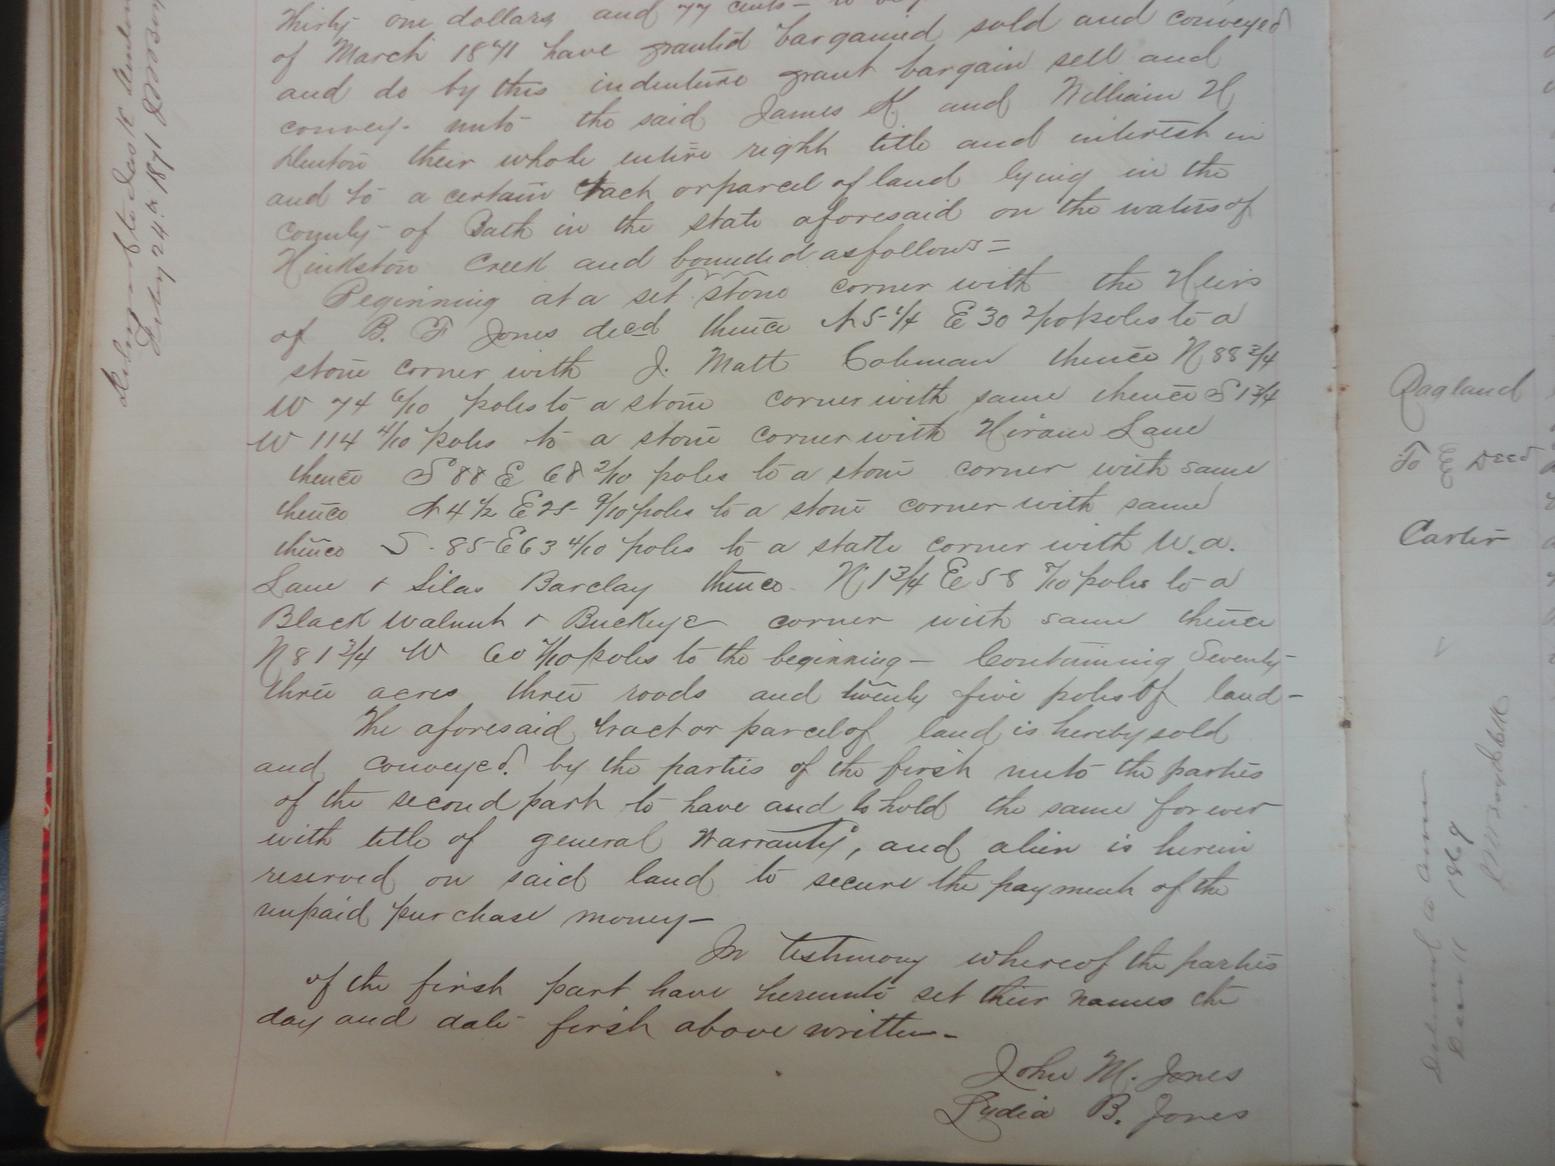 Thirty one dollars and 77 cents – to
of March 1871 have granted bargained sold and conveyed
and do by this indenture grant bargain sell and
convey unto the said James K and William H
Denton their whole entire right title and interest in
and to a certain track or parcel of land lying in the
county of Bath in the state aforesaid on the waters of
Hinkston Creek and bounded as follows =
Beginning at a set stone corner with the Heirs
of B. F Jones decd thence N 5 1/4 E 30 2/10 poles to a
stone corner with J. Matt Coleman thence N 88 3/4
W 74 6/10 poles to a stone corner with same thence S 1 3/4
W 114 4/10 poles to a stone corner with Hiram Lane
thence S 88 E 68 2/10 poles to a stone corner with same
thence N 4 1/2 E 25 9/10 poles to a stone corner with same
thence S. 85 E 63 4/10 poles to a corner with W. a.
Lane & Silas Barclay thence N 1 3/4 E 58 7/10 poles to a
Black Walnut & Buckeye corner with same thence
N 81 3/4 W 60 7/10 poles to the beginning – Containing Seventy
three acres three roods and twenty five poles of land –
The aforesaid tract or parcel of land is hereby sold
and conveyed by the parties of the first unto the parties
of the second part to have and to hold the same forever
with title of general Warranty, and alien is herein
reserved on said land to secure the payment of the
unpaid purchase money –
In testimony whereof the parties
of the first part have hereunto set their names the
day and date first above written –
John M. Jones
Lydia B. Jones
to Jas K Denton
24th 1871
Ragland
To Deed
Carter
1869